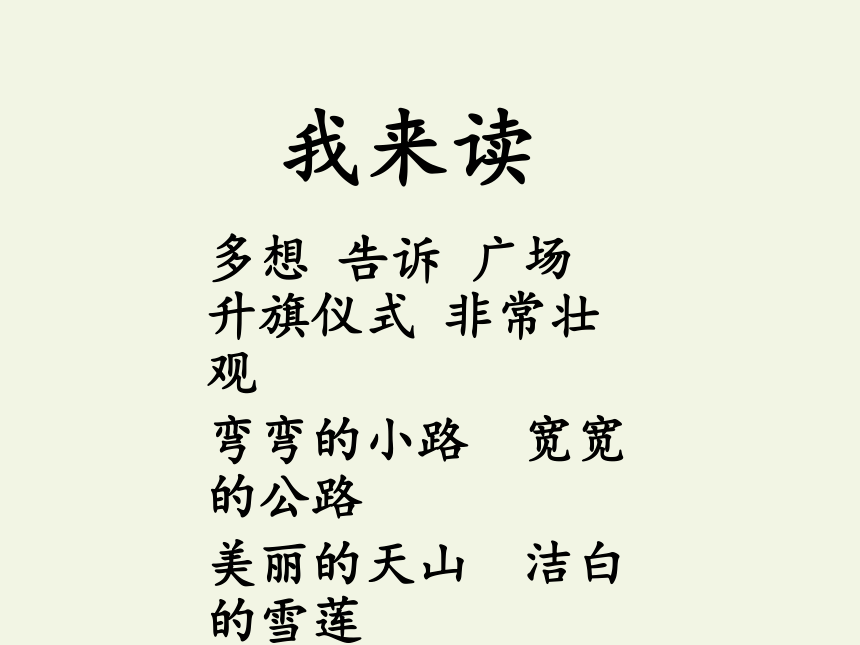 我来读
多想 告诉 广场
升旗仪式 非常壮
观
弯弯的小路 宽宽
的公路
美丽的天山 洁白
的雪莲